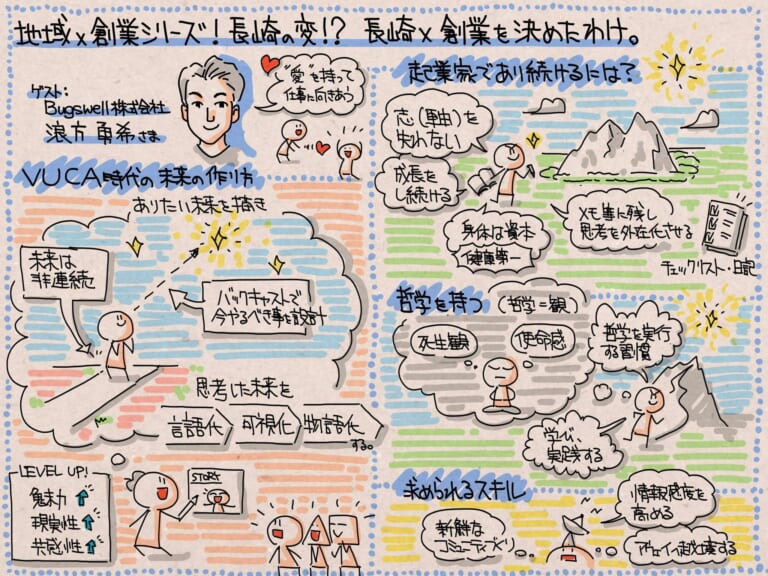 地域×創業シリーズ!長崎の変!? 長崎×創業を決めたわけ。
ゲスト:
Bugswell株式会社
浪方 勇希さま
"愛"を持って
仕事に向きあう
VUCA時代の未来の作り方
ありたい未来を描き
未来は
非連続
バックキャストで
今やるべき事を設計
思考した未来を
言語化 可視化 物語化
する。
LEVEL UP!
魅力
現実性
共感性
STORY
起業家であり続けるには?
志(理由)を
失れない
成長を
し続ける
身体は資本
健康第一
メモ等に残し
思考を外在化させる
チェックリスト・日記
哲学を持つ (哲学=観)
死生観 使命感
哲学を実行
する習慣
学び、
実践する
求められるスキル
新鮮な
コミュニティづくり
情報感度を
高める